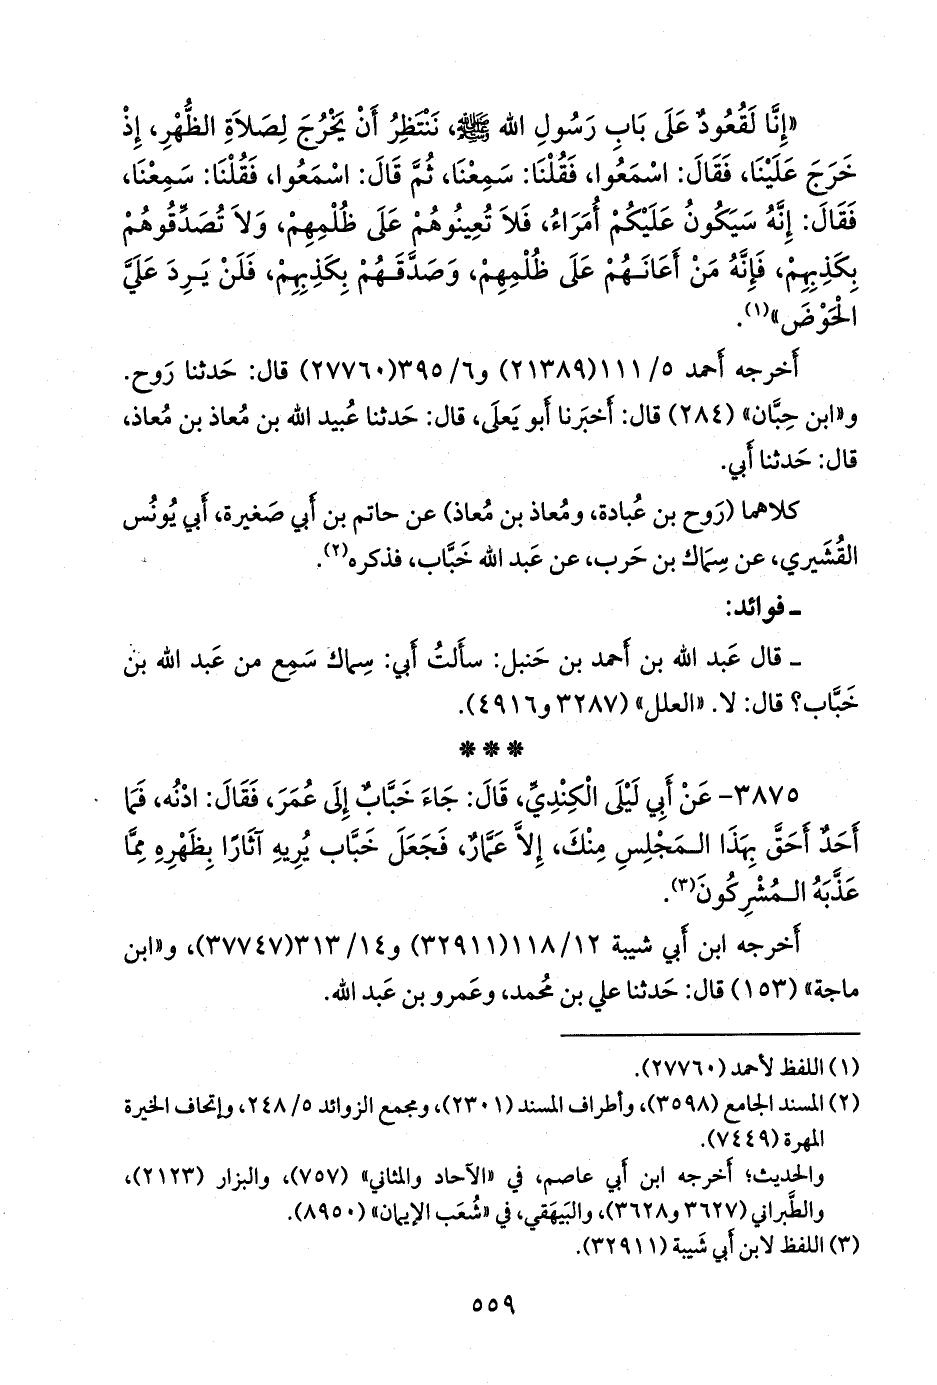 «إِنَّا لَقُعُودٌ عَلَى بَابِ رَسُولِ الله ﷺ، نَنْتَظِرُ أَنْ يَخْرُجَ لِصَلاَةِ الظُّهْرِ، إِذْ
خَرَجَ عَلَيْنَا، فَقَالَ: اسْمَعُوا، فَقُلْنَا: سَمِعْنَا، ثُمَّ قَالَ: اسْمَعُوا، فَقُلْنَا: سَمِعْنَا،
فَقَالَ: إِنَّهُ سَيَكُونُ عَلَيْكُمْ أُمَرَاءُ، فَلاَ تُعِينُوهُمْ عَلَى ظُلْمِهِمْ، وَلاَ تُصَدِّقُوهُمْ
بِكَذِبِهِمْ، فَإِنَّهُ مَنْ أَعَانَهُمْ عَلَى ظُلْمِهِمْ، وَصَدَّقَهُمْ بِكَذِبِهِمْ، فَلَنْ يَرِدَ عَلَيَّ
الْحَوْضَ»(١).
أَخرجه أَحمد ٥/ ١١١(٢١٣٨٩) و٦/ ٣٩٥(٢٧٧٦٠) قال: حَدثنا رَوح.
و«ابن حِبَّان» (٢٨٤) قال: أَخبَرنا أَبو يَعلَى، قال: حَدثنا عُبيد الله بن مُعاذ بن مُعاذ،
قال: حَدثنا أَبي.
كلاهما (رَوح بن عُبادة، ومُعاذ بن مُعاذ) عن حاتم بن أَبي صَغيرة، أَبي يُونُس
القُشَيري، عن سِمَاك بن حَرب، عن عَبد الله خَبَّاب، فذكره(٢).
ـ فوائد:
ـ قال عَبد الله بن أَحمد بن حَنبل: سأَلتُ أَبي: سِماك سَمِع من عَبد الله بن
خَبَّاب؟ قال: لا. «العلل» (٣٢٨٧ و٤٩١٦).
* * *
٣٨٧٥- عَنْ أَبِي لَيْلَى الْكِنْدِيِّ، قَالَ: جَاءَ خَبَّابٌ إِلَى عُمَرَ، فَقَالَ: ادْنُه، فَمَا
أَحَدٌ أَحَقَّ بِهَذَا الـمَجْلِسِ مِنْكَ، إِلاَّ عَمَّارٌ، فَجَعَلَ خَبَّاب يُرِيهِ آثَارًا بِظَهْرِهِ مِمَّا
عَذَّبَهُ الـمُشْرِكُونَ(٣).
أَخرجه ابن أَبي شيبة ١٢/ ١١٨(٣٢٩١١) و١٤/ ٣١٣(٣٧٧٤٧)، و«ابن
ماجة» (١٥٣) قال: حَدثنا علي بن مُحمد، وعَمرو بن عَبد الله.
(١) اللفظ لأحمد (٢٧٧٦٠).
(٢) المسند الجامع (٣٥٩٨)، وأطراف المسند (٢٣٠١)، ومجمع الزوائد ٥/ ٢٤٨، وإتحاف الخيرة
المهرة (٧٤٤٩).
والحديث؛ أَخرجه ابن أَبي عاصم، في «الآحاد والمثاني» (٧٥٧)، والبزار (٢١٢٣)،
والطَّبراني (٣٦٢٧ و٣٦٢٨)، والبَيهَقي، في «شُعَب الإيمان» (٨٩٥٠).
(٣) اللفظ لابن أبي شَيبة (٣٢٩١١).
٥٥٩